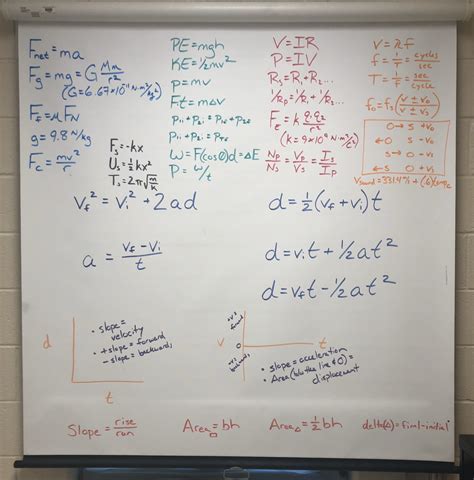 Fnet = ma
Fg = mg = G Mm/r²
(G = 6.67×10⁻¹¹ N·m²/kg²)
Ff = μFN
g = 9.8 N/kg
Fc = mv²/r
Fs = -kx
Us = ½kx²
Ts = 2π√(m/k)
PE = mgh
KE = ½mv²
p = mv
Ft = mΔv
P1i + P2i = P1f + P2f
P1i + P2i = PTf
W = F(cosθ)d = ΔE
P = W/t
V = IR
P = IV
RT = R1 + R2...
1/RT = 1/R1 + 1/R2...
FE = k q1q2/r²
(k = 9×10⁹ N·m²/C²)
Np/Ns = Vp/Vs = Is/Ip
V = λf
f = 1/T = cycles/sec
T = 1/f = sec/cycle
fo = fs(V ± Vo / V ± Vs)
O→ S +Vo
←O S -Vo
O S→
←S
Vf² = Vi² + 2ad
d = ½(Vf + Vi)t
a = Vf - Vi / t
d = Vit + ½at²
d = Vft - ½at²
d
• slope = velocity
• +slope = forward
- slope = backwards
t
v
0
t
• slope = acceleration
• Area (btw the line & 0) = displacement
Slope = rise/run
Area□ = bh
Area△ = ½bh
delta(Δ) = final - initial